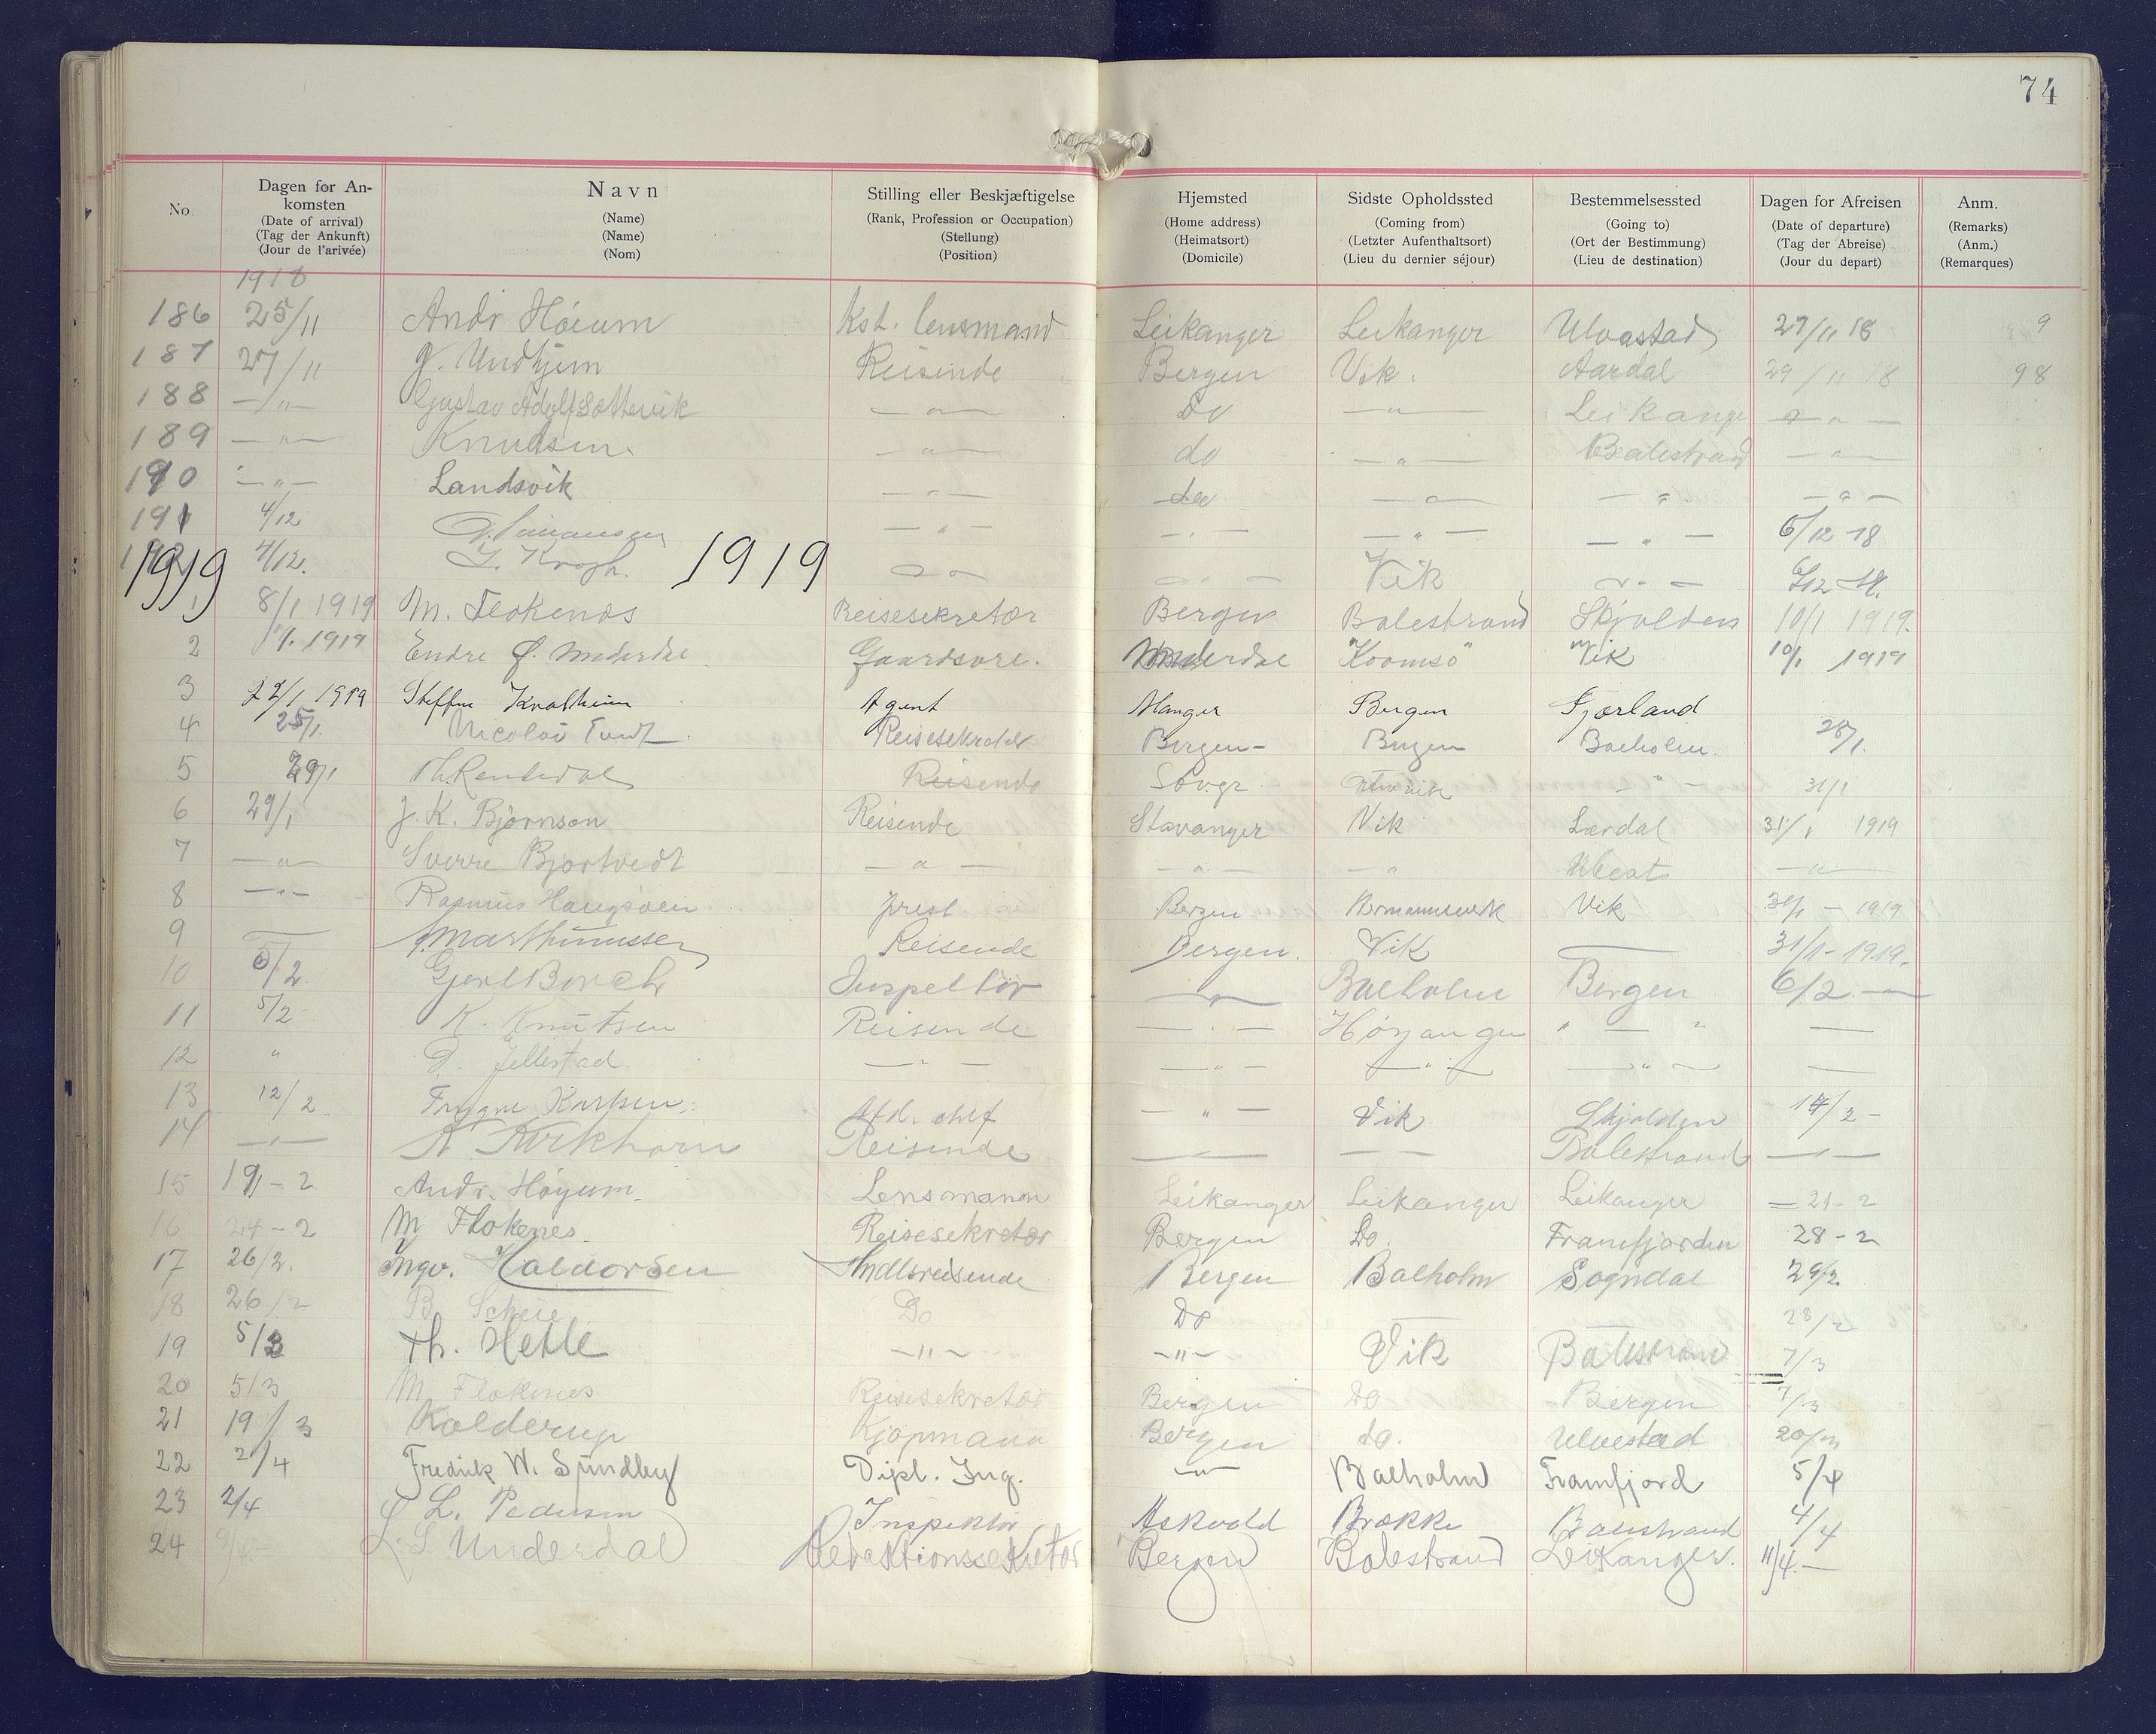 74
No. Dagen for An-komsten (Date of arrival) (Tag der Ankunft) (Jour de l'arivée) Navn (Name) (Name) (Nom) Stilling eller Beskjæftigelse (Rank, Profession or Occupation) (Stellung) (Position) Hjemsted (Home address) (Heimatsort) (Domicile) Sidste Opholdssted (Coming from) (Letzter Aufenthaltsort) (Lieu du dernier séjour) Bestemmelsessted (Going to) (Ort der Bestimmung) (Lieu de destination) Dagen for Afreisen (Date of departure) (Tag der Abreise) (Jour du depart) Anm. (Remarks) (Anm.) (Remarques)
1918
186 25/11 Andr Høium Kst. lensmand Leikanger Leikanger Ulvastad 27/11 18 9
187 27/11 Reisende Bergen Vik. Aardal 29/11 18 98
188 —"— Gustav Adolf Sættevik —"— do —"— Leikange —"—
189 —"— Knudsen. —"— do —"— Balestrand —"—
190 —"— Landsvik —"— do —"— —"— —"—
191 4/12 —"— —"— —"— —"— 6/12 18
4/12. J. Krogh. —"— —"— Vik —"—
1919 1919
1 8/1 1919 M. Flokenes Reisesekretær Bergen Balestrand Skjolden 10/1 1919.
2 1919 Endre Ø. Underdal Gaardsarb. Underdal Vik 10/1 1919
3 22/1 1919 Steffen Agent Manger Bergen Fjærland
4 25/1 Nicolai Reisesekretær Bergen Bergen Baleholm. 28/1.
5 29/1 Reisende 31/1
6 29/1 J. K. Bjørnson Reisende Stavanger Vik Lærdal 31/1 1919
7 —"— Sverre Bjortvedt —"— —"— —"— —"—
8 —"— Rasmus prest Bergen Hermannsverk Vik 31/1 – 1919
9 Marthinussen Reisende Bergen. Vik 31/1-1919.
10 5/2 Gjert Borch Inspektör —"— Baleholm Bergen 6/2 —
11 5/2 K. Knutsen Reisende —"— Höyanger " — " —
12 " Jellestad —"— —"— —"— —"— —
13 12/2 Trygve Karlsen. Afd. chef —"— Vik Skjolden 14/2 –
14 —"— K Kirkhorn Reisende — — — Balestrand —"—
15 19/-2 Andr. Höyum. Lensmann Leikanger Leikanger Leikanger 21-2
16 24-2 M Flokenes. Reisesekretær Bergen Do. Framfjorden 28-2
17 26/2. Ingv. Haldorsen Hndlsreisende Bergen Balholm Sogndal 29/2.
18 26/2 B. Scheie Do Do — — 28/2
19 5/3 Th. Hetle —"— —"— Vik Balestrand 7/3
20 5/3 M. Flokenes Reisesekretær Bergen Do Bergen 7/3
21 19/3 Kalderup Kjøpmann Bergen do. Ulvestad 20/3
22 2/4 Fredrik W. Spindley Dipl. Ing. —"— Baleholm Framfjord 5/4
23 2/4 L. Pedersen Inspektör Askvold Brække Balestrand 4/4
24 L. S. Underdal Redaktionssekretær Bergen Balestrand Leikanger. 11/4. —